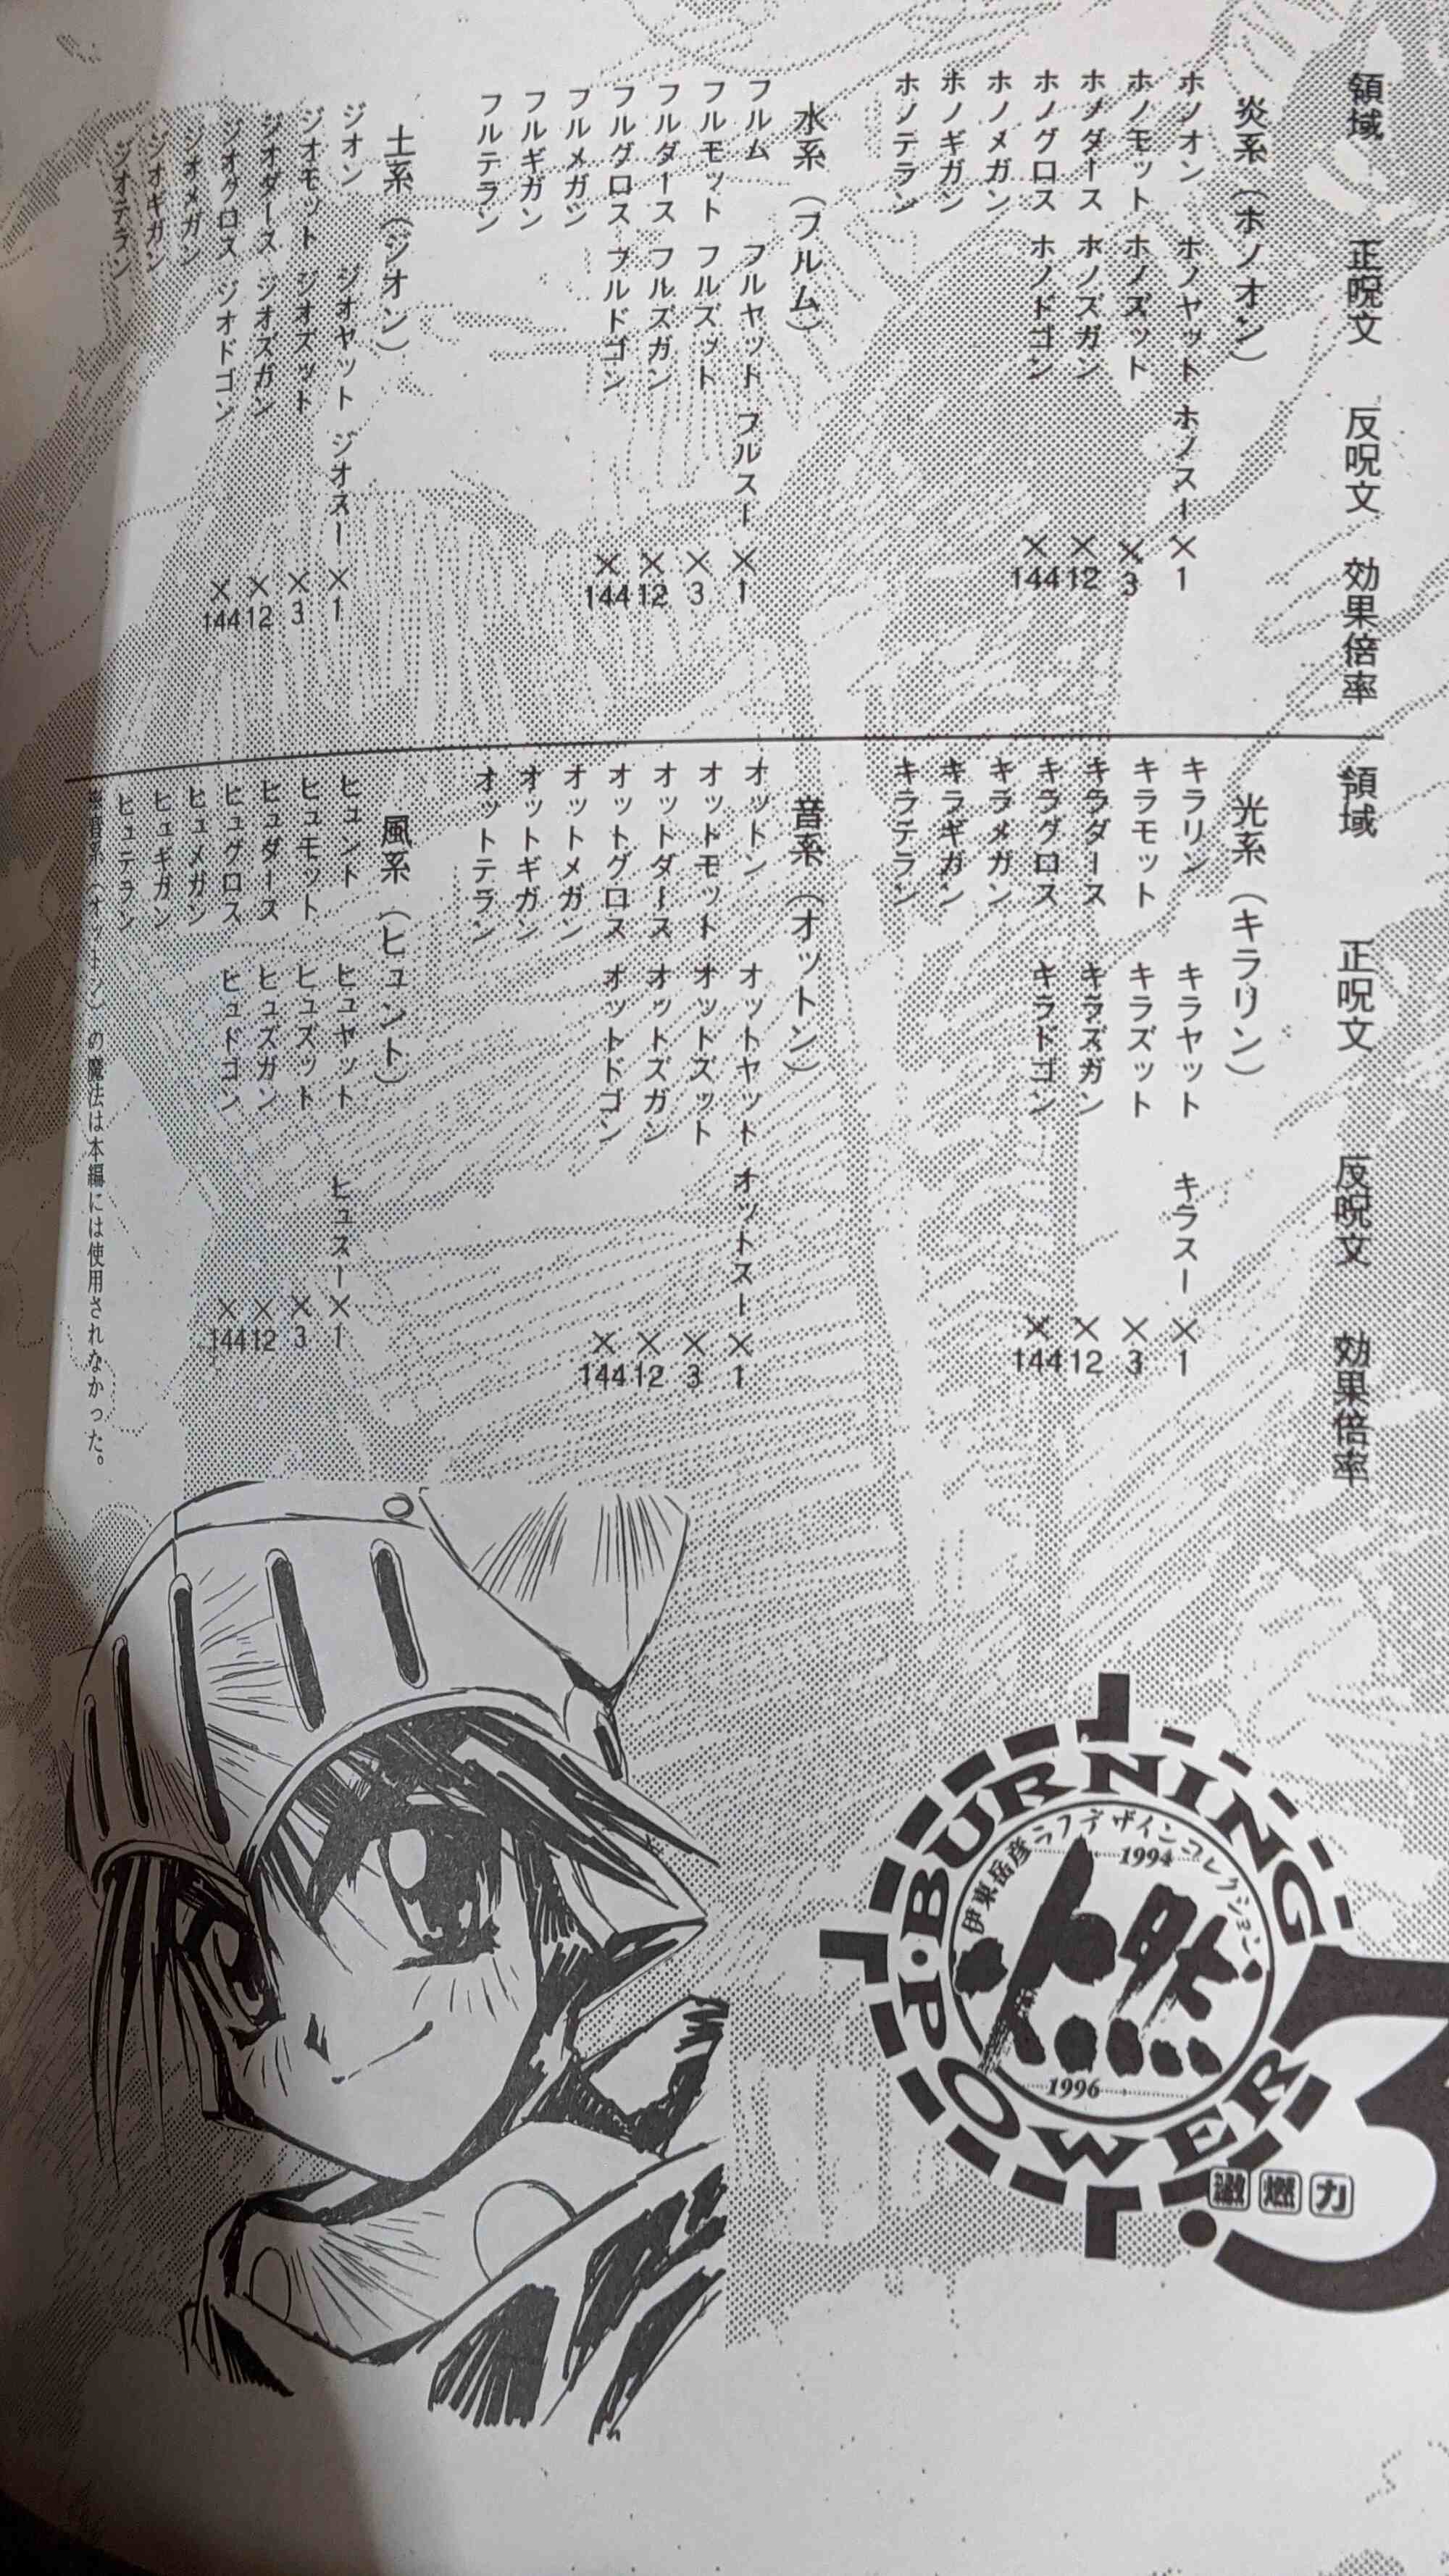 領域 正呪文 反呪文 効果倍率
炎系（ホノオン）
ホノオン ホノヤット ホノスー ×1
ホノモット ホノズット ×3
ホノダース ホノズガン ×12
ホノグロス ホノドゴン ×144
ホノメガン
ホノギガン
ホノテラン
水系（フルム）
フルム フルヤット フルスー ×1
フルモット フルズット ×3
フルダース フルズガン ×12
フルグロス フルドゴン ×144
フルメガン
フルギガン
フルテラン
土系（ジオン）
ジオン ジオヤット ジオスー ×1
ジオモット ジオズット ×3
ジオダース ジオズガン ×12
ジオグロス ジオドゴン ×144
ジオメガン
ジオギガン
ジオテラン
領域 正呪文 反呪文 効果倍率
光系（キラリン）
キラリン キラヤット キラスー ×1
キラモット キラズット ×3
キラダース キラズガン ×12
キラグロス キラドゴン ×144
キラメガン
キラギガン
キラテラン
音系（オットン）
オットン オットヤット オットスー ×1
オットモット オットズット ×3
オットダース オットズガン ×12
オットグロス オットドゴン ×144
オットメガン
オットギガン
オットテラン
風系（ヒュント）
ヒュント ヒュヤット ヒュスー ×1
ヒュモット ヒュズット ×3
ヒュダース ヒュズガン ×12
ヒュグロス ヒュドゴン ×144
ヒュメガン
ヒュギガン
ヒュテラン
音系（オットン）の魔法は本編には使用されなかった。
BURNING POWER
伊東岳彦ラフデザインコレクション
1994
1996
激燃力
3